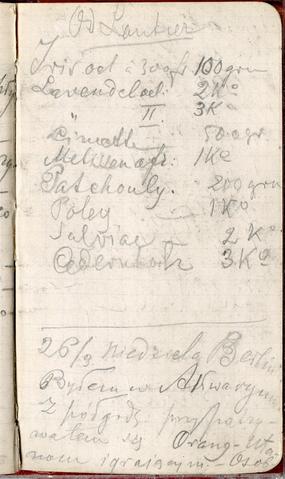 Od Lautier
Irisoel à 300fr 100grm
Lavendeloel I. 2Ko
" II. 3K
500gr
Melissen 1Ko
Patchouly. 200grm
Poley — 1Ko
Salviae — 2Ko
Cedernholz 3Ko
26/9 Niedziela Berlin
Byłem w Akwaryum
Z pół godz. przypatry-
wałem się Orang-Uta
nom igrającym. - Osob